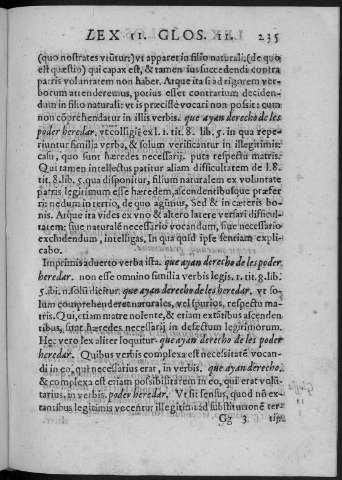 LEX II. GLOS. II. 235
(quo nostrates vtũtur) vt apparet in filio naturali, (de quo
est quæstio) qui capax est, & tamen ius succedendi contra
patris voluntatem non habet. Atque ita si ad rigorem ver-
borum attenderemus, potius esset contrarium deciden-
dum in filio naturali: vt is præcissè vocari non possit: cum
non cõprehendatur in illis verbis. que ayan derecho de les
poder heredar. vt colligit ex l. 1. tit. 8. lib. 5. in qua repe-
riuntur similia verba, & solum verificantur in illegitimis
casu, quo sunt hæredes necessarij. puta respectu matris.
Qui tamen intellectus patitur aliam difficultatem de l. 8.
tit. 8. lib. 5. qua disponitur, filium naturalem ex voluntate
patris legitimum esse hæredem, ascendentibusque præfer
ri: nedum in tertio, de quo agimus, Sed & in cæteris bo-
nis. Atque ita vides ex vno & altero latere versari difficul-
tatem: siue naturalẽ necessario vocandum, siue necessario
excludendum, intelligas. In qua quid ipse sentiam expli-
cabo.
Imprimis aduerto verba ista. que ayan derecho de les poder
heredar. non esse omnino similia verbis legis. 1. tit. 8. lib.
5. ibi. n. solũ dicitur. que ayan derecho de les heredar. vt so-
lum comprehenderet naturales, vel spurios, respectu ma-
tris. Qui, etiam matre nolente, & etiam extãtibus ascenden
tibus, sunt hæredes necessarij in defectum legitimorum.
Hęc vero lex aliter loquitur. que ayan derecho de les poder
heredar. Quibus verbis complexa est necessitatẽ vocan-
di in eo, qui necessarius erat, in verbis. que ayan derecho.
& complexa est etiam possibilitatem in eo, qui erat volũ-
tarius, in verbis. poder heredar. Vt sit sensus, quod nõ ex-
tantibus legitimis vocentur illegitimi ad substitutionẽ ter-
Gg 3 tij.